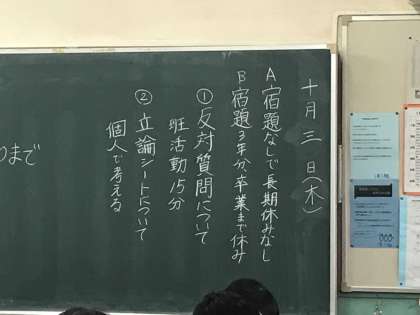 十月三日(木)
A 宿題なしで長期休みなし
B 宿題3年分、卒業まで休み
① 反対質問について
班活動 15分
② 立論シートについて
個人で考える
まで